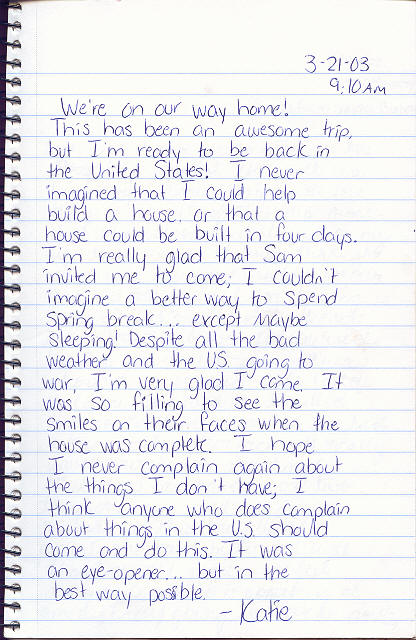 3-21-03
9:10 AM
We're on our way home!
This has been an awesome trip,
but I'm ready to be back in
the United States! I never
imagined that I could help
build a house, or that a
house could be built in four days.
I'm really glad that Sam
invited me to come; I couldn't
imagine a better way to spend
spring break... except maybe
sleeping! Despite all the bad
weather and the U.S. going to
war, I'm very glad I came. It
was so filling to see the
smiles on their faces when the
house was complete. I hope
I never complain again about
the things I don't have; I
think anyone who does complain
about things in the U.S. should
come and do this. It was
an eye-opener... but in the
best way possible.
- Katie